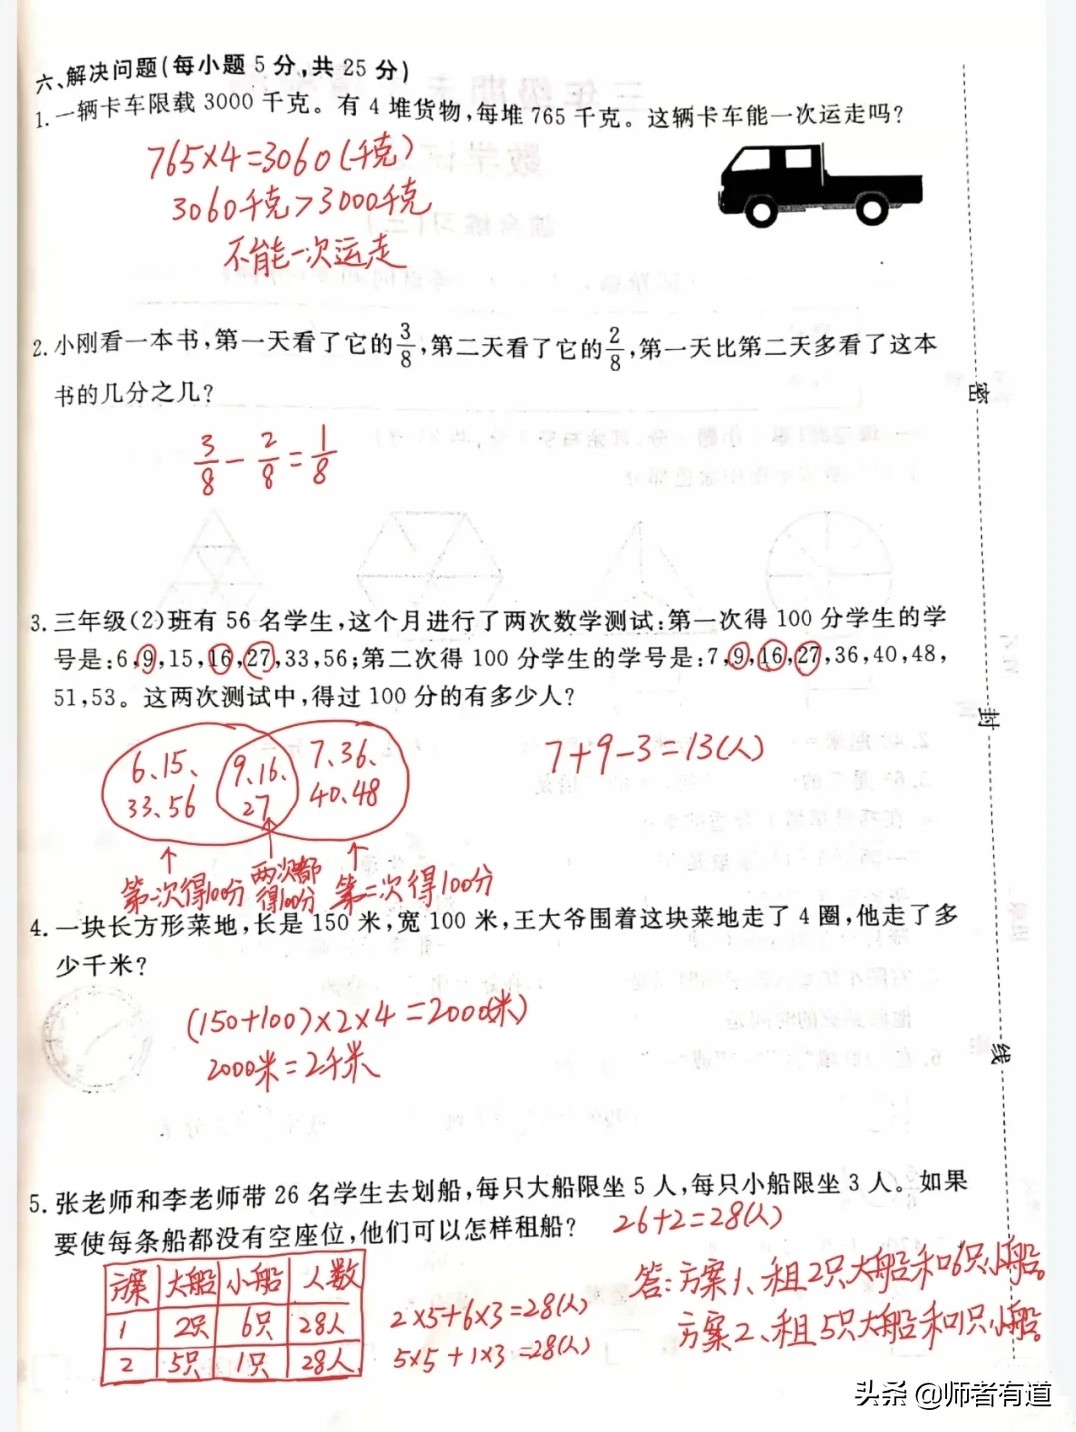 六、解决问题(每小题 5 分,共 25 分)
1. 一辆卡车限载 3000 千克。有 4 堆货物,每堆 765 千克。这辆卡车能一次运走吗?
765×4=3060(千克)
3060千克>3000千克
不能一次运走
2. 小刚看一本书,第一天看了它的3/8,第二天看了它的2/8,第一天比第二天多看了这本
书的几分之几?
3/8-2/8=1/8
3. 三年级(2)班有 56 名学生,这个月进行了两次数学测试:第一次得 100 分学生的学
号是:6,9,15,16,27,33,56;第二次得 100 分学生的学号是:7,9,16,27,36,40,48,
51,53。这两次测试中,得过 100 分的有多少人?
6、15、
33、56
9、16、
27
7、36、
40、48
7+9-3=13(人)
第一次得100分
两次都
得100分
第二次得100分
4. 一块长方形菜地,长是 150 米,宽 100 米,王大爷围着这块菜地走了 4 圈,他走了多
少千米?
(150+100)×2×4=2000(米)
2000米=2千米
5. 张老师和李老师带 26 名学生去划船,每只大船限坐 5 人,每只小船限坐 3 人。如果
要使每条船都没有空座位,他们可以怎样租船?
26+2=28(人)
方案 大船 小船 人数
1 2只 6只 28人
2 5只 1只 28人
2×5+6×3=28(人)
5×5+1×3=28(人)
答:方案1、租2只大船和6只小船。
方案2、租5只大船和1只小船。
密
封
线
头条 @师者有道